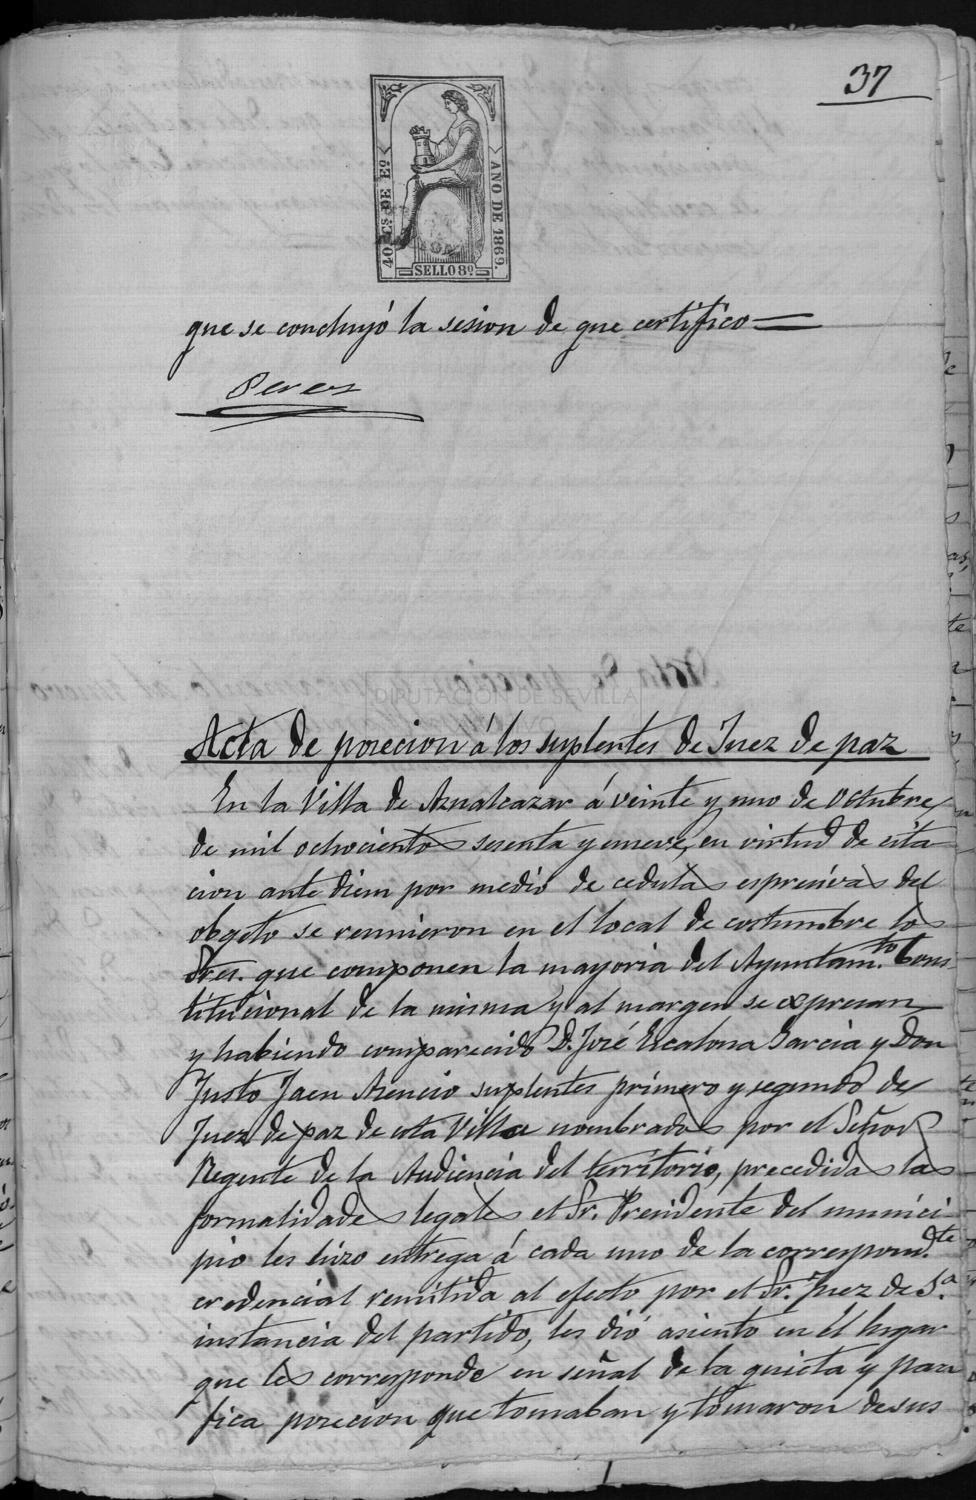 37
40 Cs. DE Eo.
AÑO DE 1869.
SELLO 8º
que se concluyó la sesion de que certifico=
Perez
DIPUTACIÓN DE SEVILLA
Acta de posecion á los suplentes de Juez de paz
En la Villa de Aznalcazar á veinte y uno de Octubre
de mil ochocientos sesenta y nueve, en virtud de cita
cion ante diem por medio de cedulas espresivas del
obgeto se reunieron en el local de costumbre los
Sres. que componen la mayoria del Ayuntam.to Cons
titucional de la misma y al margen se expresan
y habiendo comparecido D. José Escalona Garcia y Don
Justo Jaen Asencio suplentes primero y segundo de
Juez de paz de esta Villa nombrados por el Señor
Regente de la Audiencia del territorio, precedidas las
formalidades legales el Sr. Presidente del munici
pio les hizo entrega á cada uno de la correspond.te
credencial remitida al efecto por el Sr. Juez de 1.a
instancia del partido, les dió asiento en el lugar
que les corresponde en señal de la quieta y pasi
fica posecion que tomaban y tomaron de sus